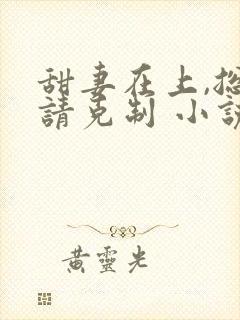 甜妻在上,
請克制 小
黃靈光